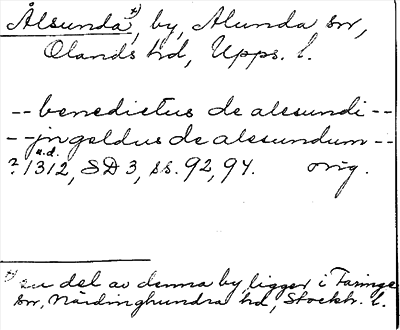 Ålsunda *), by, Alunda sn,
Olands hd, Upps. l.
-- benedictus de alesundi --
-- jngeldus de alesundum --
u.d.
? 1312, SD 3, ss. 92, 94. orig.
*) en del av denna by ligger i Faringe
sn, Närdinghundra hd, Stockh. l.